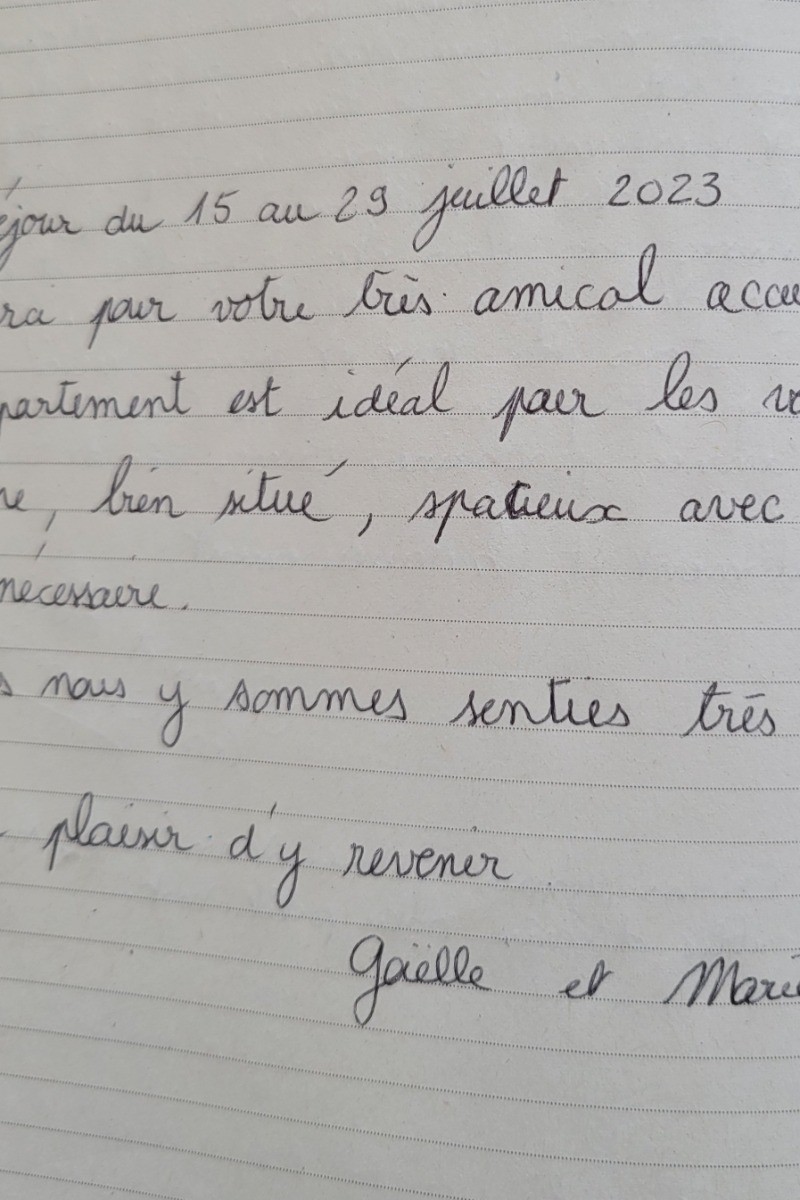 éjour du 15 au 29 juillet 2023
ra pour votre très amical accu
partement est idéal pour les
re, bien situé, spacieux avec
nécessaire.
s nous y sommes senties très
plaisir d'y revenir
Gaëlle et Marie